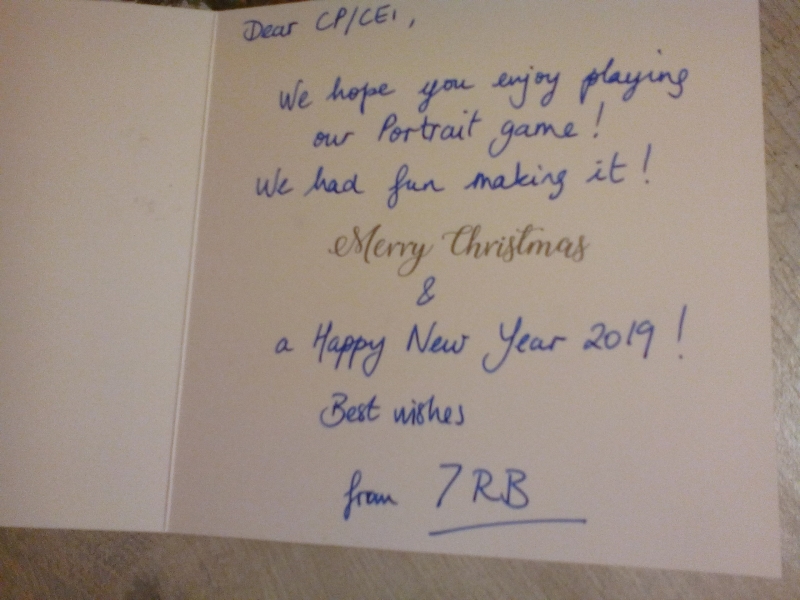 Dear CP/CE1,
We hope you enjoy playing
our Portrait game!
We had fun making it!
Merry Christmas
&
a Happy New Year 2019!
Best wishes
from 7RB